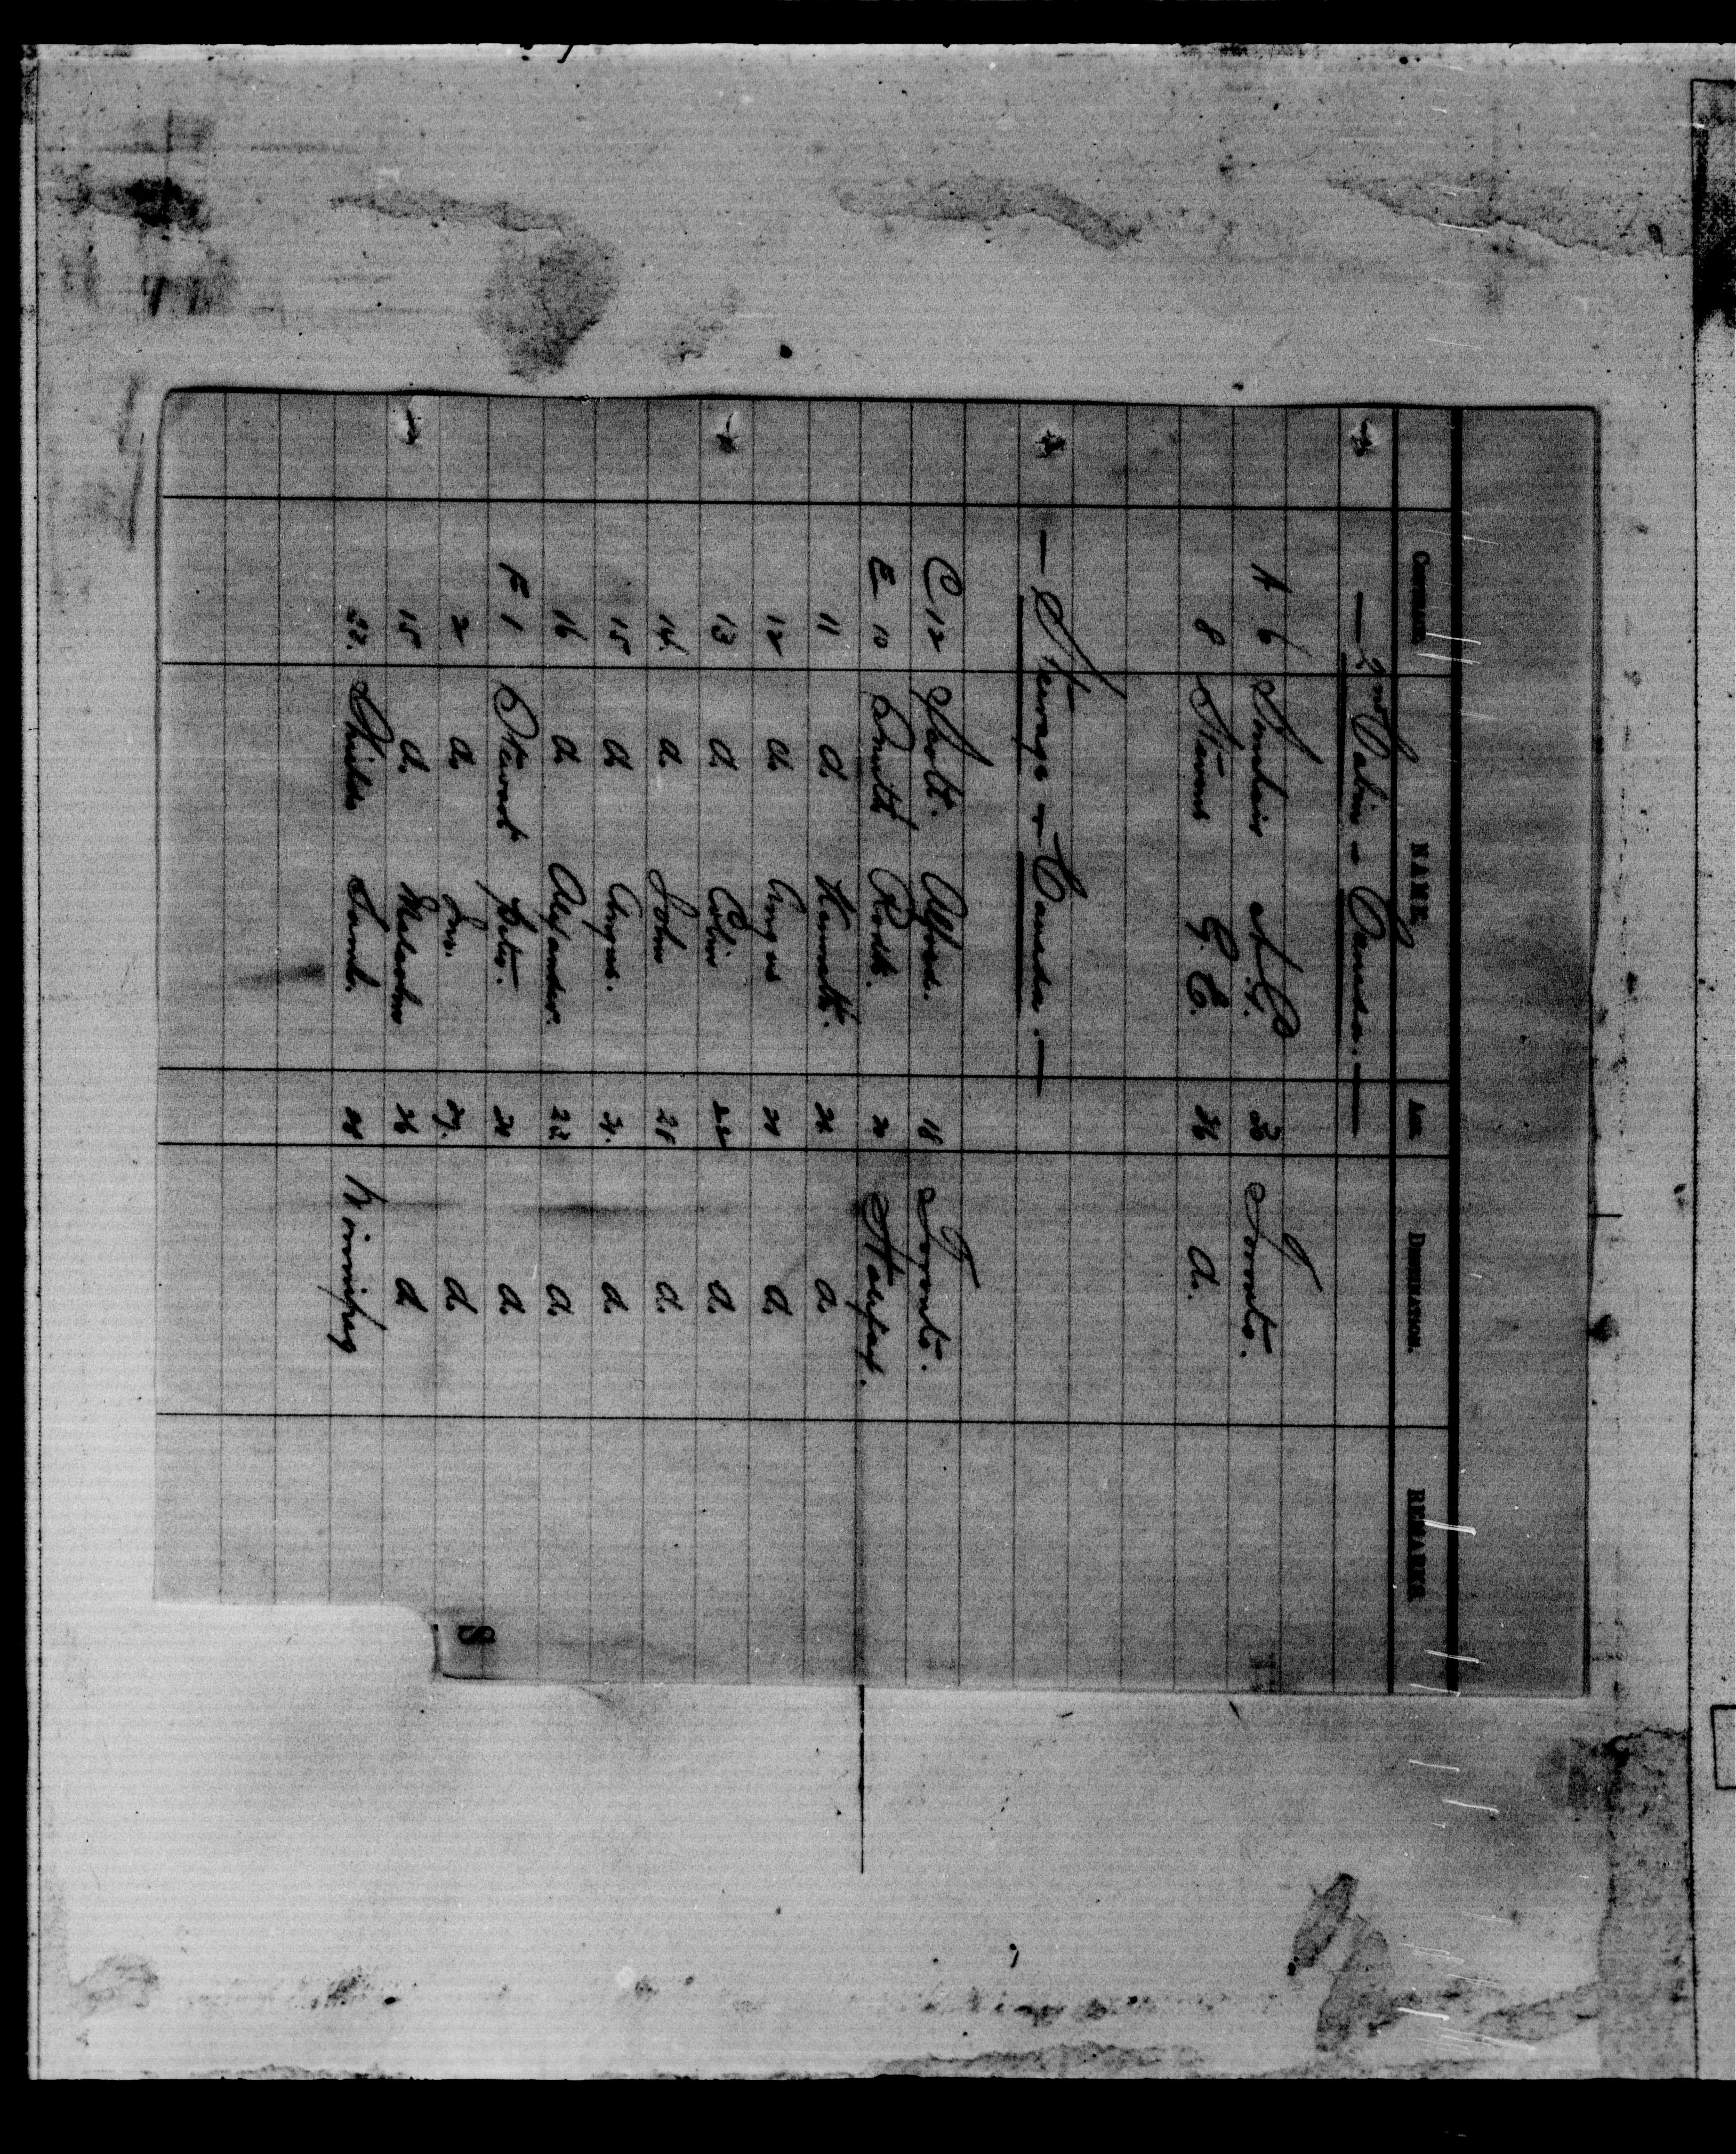 CONTRACT. NAME AGE DESTINATION. REMARKS
— 2nd Cabin - Canada. —
A 6 Sinclair A. G. 30 Toronto.
8 Stevens G. E. 36 d.
— Steerage - Canada. —
C 12 Scott. Alfred. 18 Toronto.
E 10 Smith Rodk. 20 Halifax.
11 d. Kenneth. d.
12 d. Angus d.
13 d. Colin 22 d.
14. d. John 28 d.
15 d. Angus. d.
16 d. Alexander. 22 d.
F 1 Stewart Peter. d.
2 d. Jno. d.
15 d. Malcolm 26 d.
22. Saml. Winnipeg
S